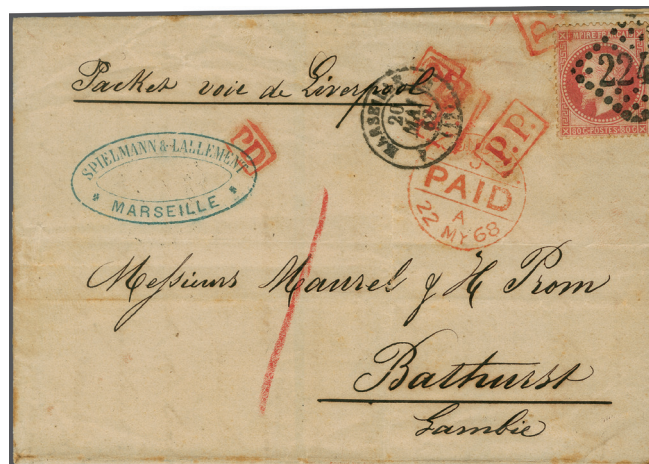 Packet voie de Liverpool
SPIELMANN & LALLEMENT
MARSEILLE
PD
MARSEILLE
20
MAI
68
P.P.
PAID
A
22 MY 68
EMPIRE FRANÇAIS
224
80C POSTES 80C
1
Messieurs Maurel & H Prom
Bathurst
Gambie